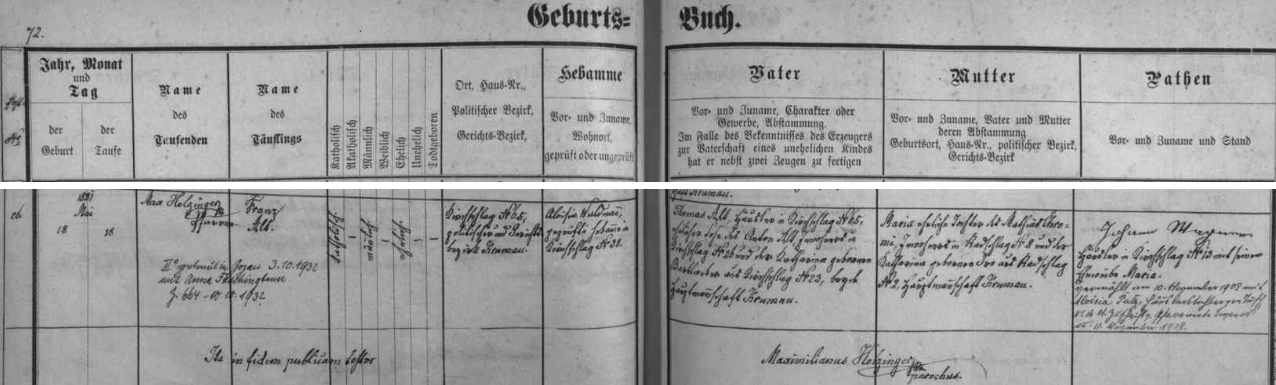 72.
Geburts=
Buch.
Jahr, Monat
und
Tag
der
Geburt
der
Taufe
Name
des
Taufenden
Name
des
Täuflings
Katholisch
Akatholisch
Männlich
Weiblich
Ehelich
Unehelich
Todtgeboren
Ort, Haus-Nr.,
Politischer Bezirk,
Gerichts-Bezirk,
Hebamme
Vor- und Zuname,
Wohnort,
geprüft oder ungeprüft
Vater
Vor- und Zuname, Charakter oder
Gewerbe, Abstammung.
Im Falle des Bekenntnisses des Erzeugers
zur Vaterschaft eines unehelichen Kindes
hat er nebst zwei Zeugen zu fertigen
Mutter
Vor- und Zuname, Vater und Mutter
deren Abstammung
Geburtsort, Haus-Nr., politischer Bezirk,
Gerichts-Bezirk
Pathen
Vor- und Zuname und Stand
1881
Mai
18
18
Max Holzinger
Pfarrer
Franz
Alt.
katholisch
männlich
ehelich
Kirchschlag N° 65,
politischer und Gerichts-
bezirk Krumau.
Aloisia
geprüfte Hebamme
Kirchschlag N° 38.
Krumau.
Thomas Alt, Häusler in Kirchschlag N° 65,
ehelicher Sohn des Anton Alt, Inwohners in
Kirchschlag N° 26 und der Katharina geborenen
aus Kirchschlag N° 23, Bezirk
hauptmannschaft Krumau.
Maria eheliche Tochter des Mathias
Inwohners in Stadschlag N° 8 und der
Katharina geborenen aus Stadschlag
N° 2, Hauptmannschaft Krumau.
Johann Wagner
Häusler in Kirchschlag N° 12 mit seinem
Eheweibe Maria.
vermählt am 10. November 1908 mit
Aloisia
November 1908.
II° getraut in 3.10.1932
mit Anna
Z. 664 1932
Ita in fidem publicam testor
Maximilianus Holzinger
parochus.